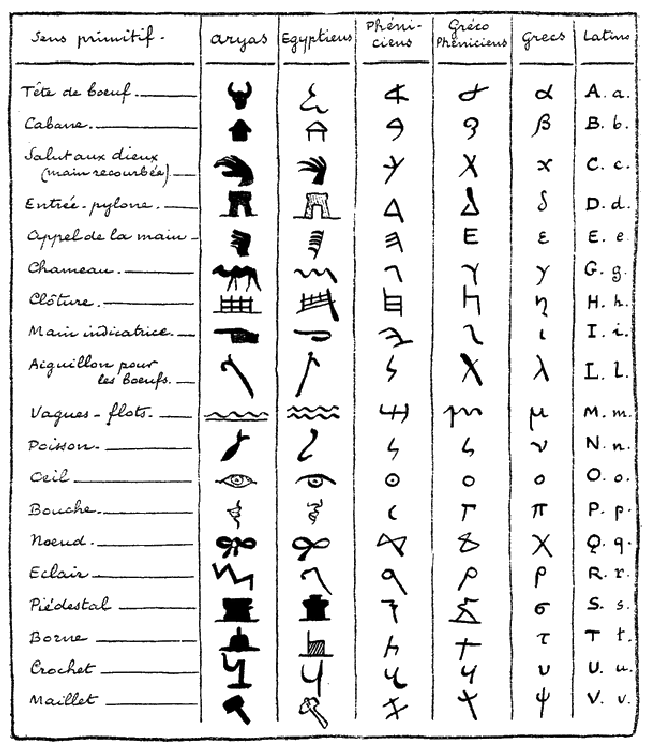 Sens primitif. Aryas Egyptiens Phéni- Gréco Grecs Latins
ciens Phéniciens
Tête de boeuf. α A. a.
Cabane. β B. b.
Salut aux dieux
(main recourbée) x C. c.
Entrée-pylone. δ D. d.
Appel de la main E ε E. e
Chameau. γ G. g.
Clôture. η H. h.
Main indicatrice. ι I. i.
Aiguillon pour
les boeufs. λ L. l.
Vagues-flots. μ M. m.
Poisson. ν N. n.
Oeil o O. o.
Bouche. π P. p.
Noeud. X Q. q.
Eclair ρ R. r.
Piédestal σ S. s.
Borne τ T t.
Crochet υ U. u.
Maillet ψ V. v.